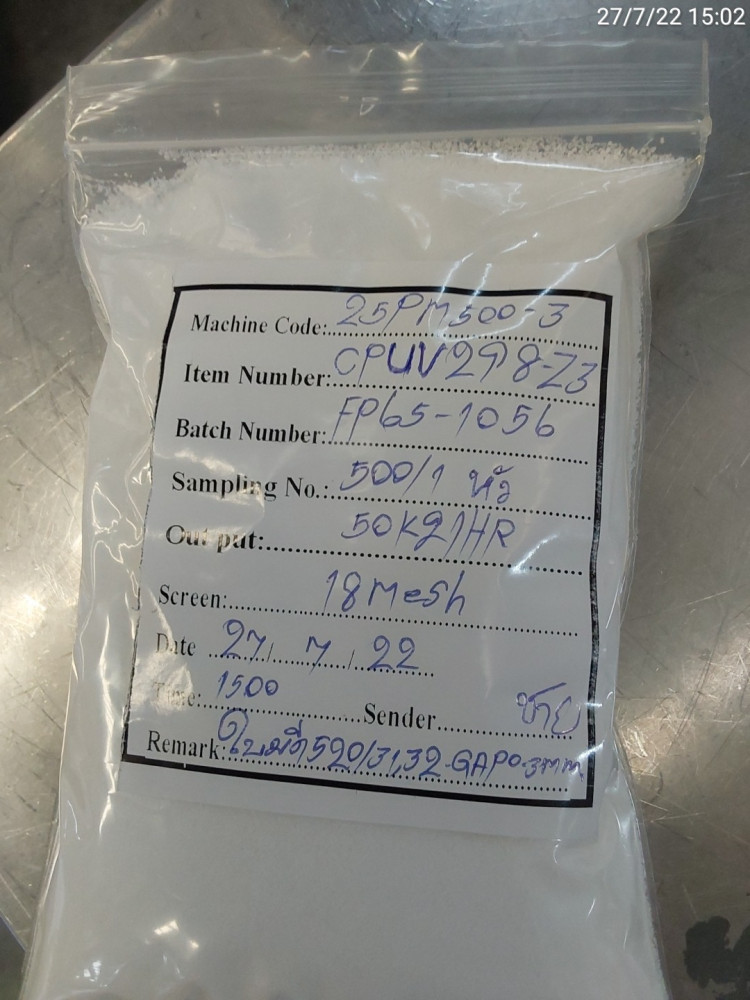 27/7/22 15:02
Machine Code: 25PM500-3
Item Number: CPUV298-Z3
Batch Number: FP65-1056
Sampling No.: 500/1 หัว
Out put: 50KG/HR
Screen: 18 Mesh
Date 27/7/22
Time: 1500 Sender ชาย
Remark: ใบมีด 520/31,32-GAP0.3mm